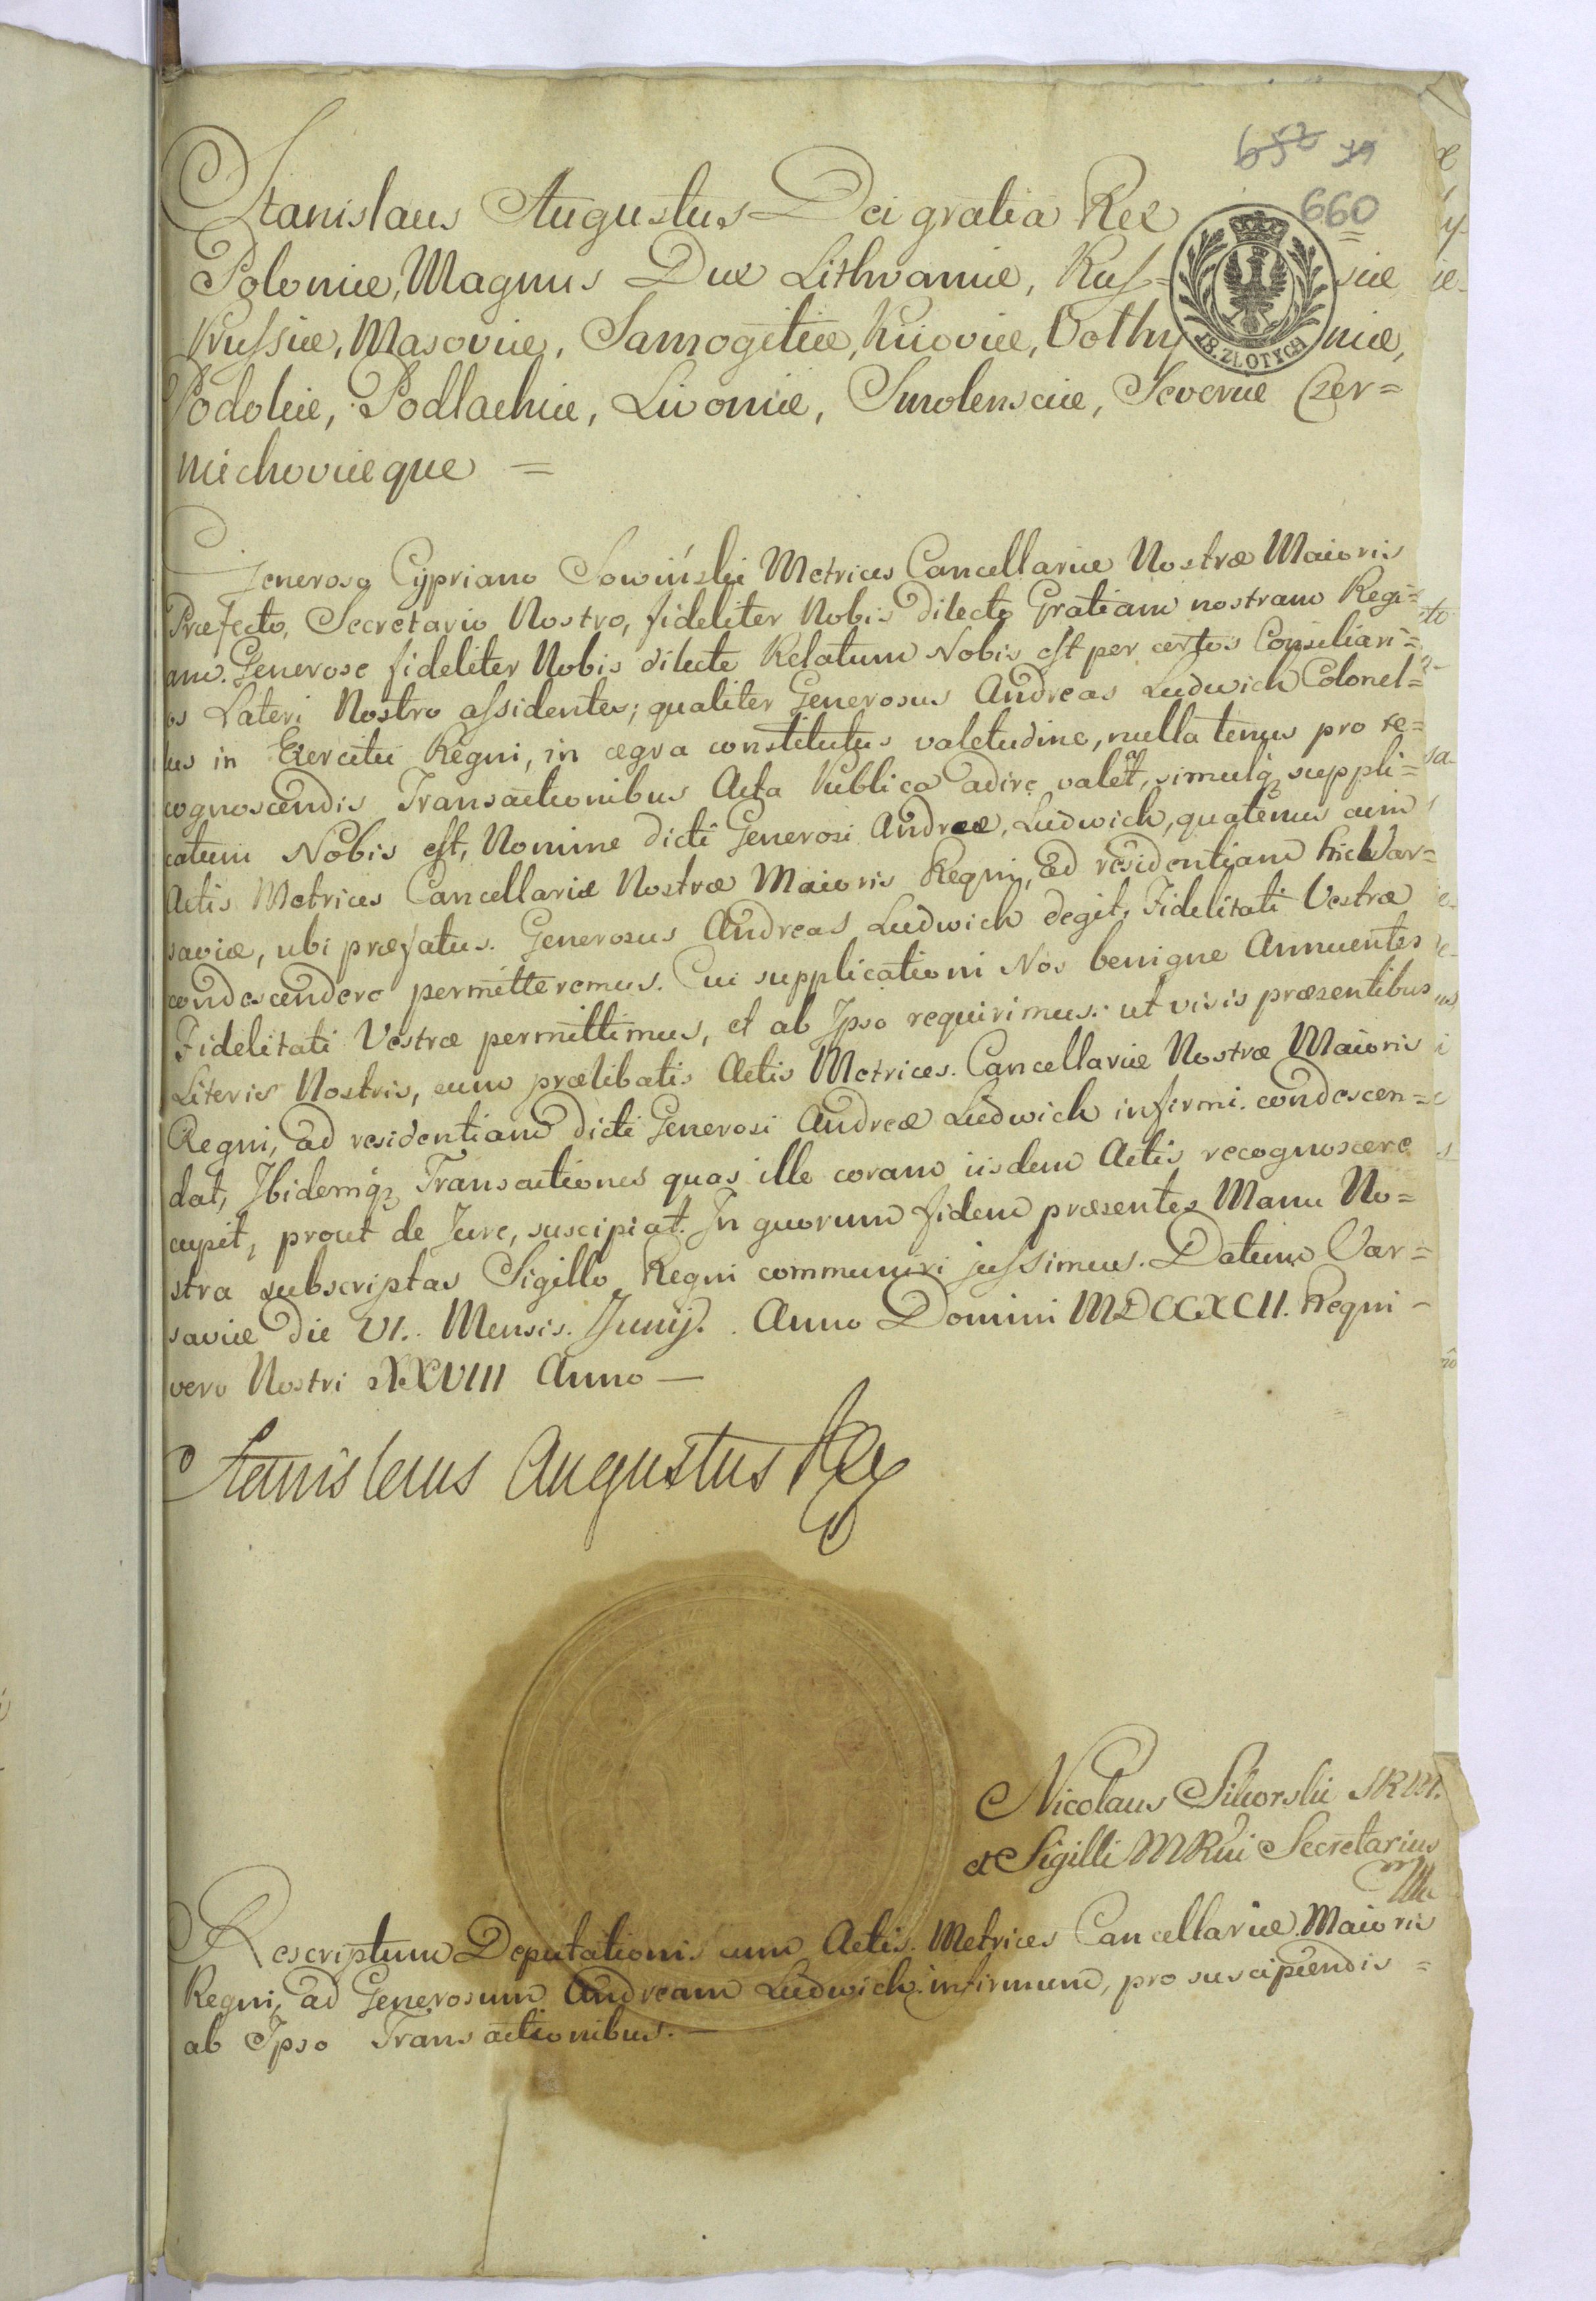 652 39
660
Stanislaus Augustus Dei gratia Rex
Poloniæ, Magnus Dux Lithvaniæ, Rus= siæ
Prussiæ, Masoviæ, Samogitiæ, Kijoviæ, Volhy niæ,
18. ZŁOTYCH
Podoliæ, Podlachiæ, Livoniæ, Smolensciæ, Severiæ Czer=
niechoviæque =
Generoso Cypriano Sowiński Metrices Cancellariæ Nostræ Maioris
Præfecto, Secretario Nostro, fideliter Nobis dilecto Gratiam nostram Regi=
am. Generose fideliter Nobis dilecte Relatum Nobis est per certos Consiliari=
os Lateri Nostro assidentes; qualiter Generosus Andreas Ludwich Colonel=
lus in Exercitu Regni, in ægra constitutus valetudine, nulla tenus pro re=
cognoscendis Transactionibus Acta Publica adire valeat, simulq suppli=
catum Nobis est, Nomine dicti Generosi Andreæ, Ludwich, quatenus cum
Actis Metrices Cancellariæ Nostræ Maioris Regni, ad residentiam hic Var=
saviæ, ubi præfatus. Generosus Andreas Ludwich degit, Fidelitati Vestræ
condescendere permitteremus. Cui supplicationi Nos benigne Annuentes
Fidelitati Vestræ permittimus, et ab Ipso requirimus: ut visis præsentibus
Literis Nostris, cum prælibatis Actis Metrices. Cancellariæ Nostræ Maioris
Regni, ad residentiam dicti Generosi Andreæ Ludwich infirmi. condescen=
dat, Ibidemq Transactiones quas ille coram iisdem Actis recognoscere
cupit, prout de Jure, suscipiat. In quorum fidem præsentes Manu No=
stra subscriptas Sigillo Regni communiri jussimus. Datum Var=
saviæ die VI. Mensis. Junij. Anno Domini MDCCXCII. Regni
vero Nostri XXVIII Anno —
Stanislaus Augustus Rex
Nicolaus Sikorski SRM.
et Sigilli MRni Secretarius
Rescriptum Deputationis cum Actis. Metrices Cancellariæ. Maioris
Regni, ad Generosum Andream Ludwich. infirmum, pro suscipiendis =
ab Ipso Transactionibus. —